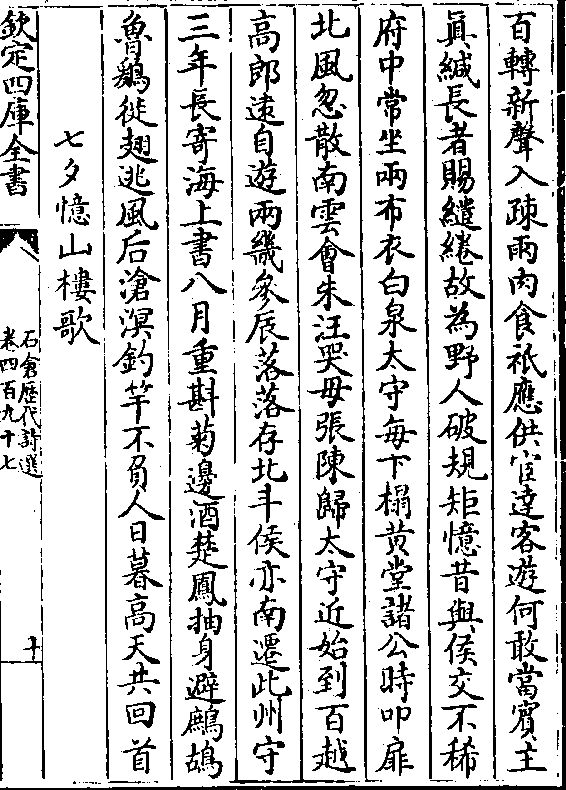 百轉新聲入疎雨肉食祇應供宦達客遊何敢當賓主
眞緘長者賜繾綣故為野人破規矩憶昔與侯交不稀
府中常坐兩布衣白泉太守毎下榻黄堂諸公時叩扉
北風忽散南雲會朱汪哭母張陳歸太守近始到百越
高郎遠自遊兩畿參辰落落存北斗侯亦南遷此州守
三年長寄海上書八月重斟菊邊酒楚鳳抽身避鷓鴣
魯鷄徙翅逃風后滄溟釣竿不負人日暮高天共回首
七夕憶山樓歌
欽定四庫全書
石倉歴代詩選
卷四百九十七
十